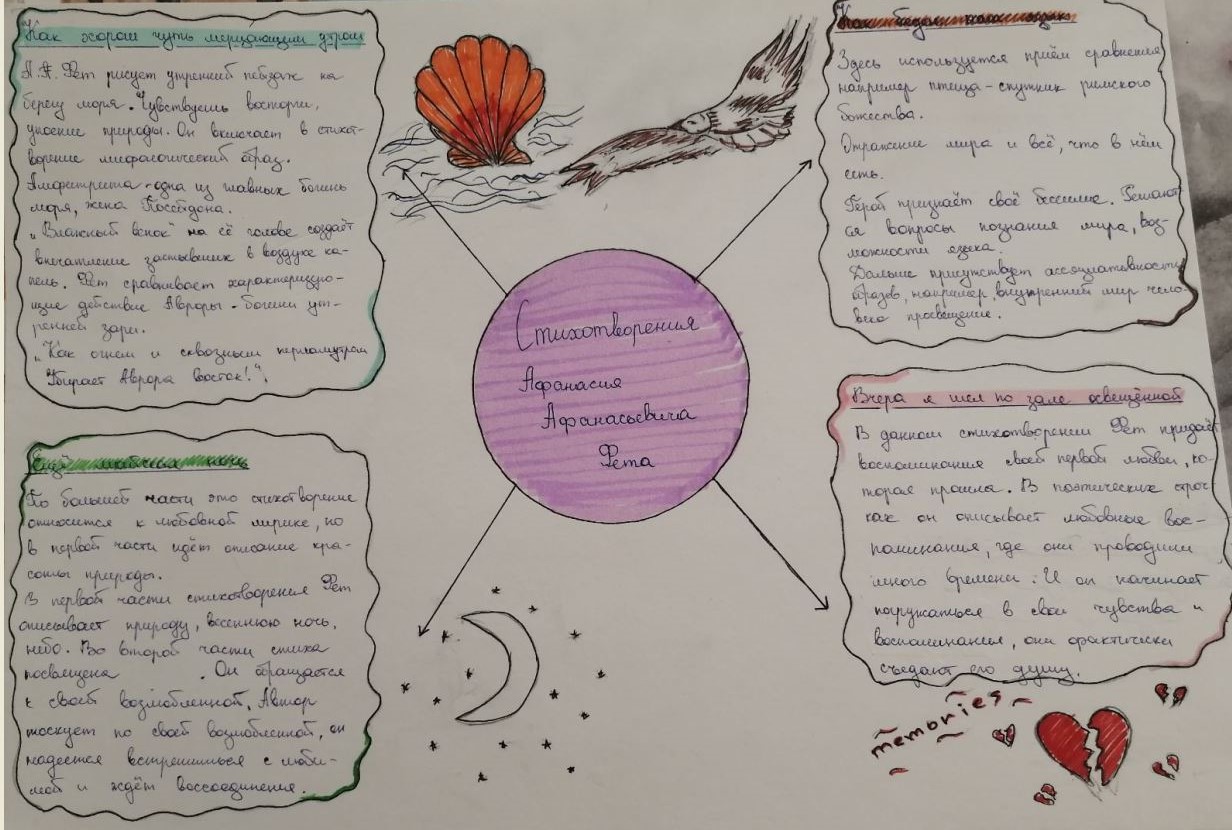 Как хорош чуть мерцающим утром
А.А. Фет рисует утренний пейзаж на
берегу моря. Чувствуешь восторги,
упоение природы. Он включает в стихот-
ворение мифологический образ.
Амфитрита - одна из главных богинь
моря, жена Посейдона.
„Влажный венок" на её голове создаёт
впечатление застывших в воздухе ка-
пель. Фет сравнивает характеризую-
щие действие Авроры - богини ут-
ренней зари.
„Как огнем и сквозным перламутром
Убирает Аврора восток!".
Как беден наш язык
Здесь используется приём сравнения
например птеца - спутник римского
божества.
Отражение мира и всё, что в нём
есть.
Герой признаёт своё бессилие. Решают
ся вопросы познания мира, воз-
можности языка.
Дальше присутствует ассоциативность
образов, например, внутренний мир чело-
века просвещение.
Стихотворения
Афанасия
Афанасьевича
Фета
Ещё майская ночь
По большей части это стихотворение
относится к любовной лирике, но
в первой части идёт описание кра-
соты природы.
В первой части стихотворения Фет
описывает природу, весеннюю ночь,
небо. Во второй части стиха
посвещена . Он обращается
к своей возлюбленной. Автор
тоскует по своей возлюбленной, он
надеется встретиться с люби-
мой и ждёт воссоединения.
Вчера я шел по зале освещённой
В данном стихотворении Фет придаёт
воспоминания своей первой любви, ко-
торая прошла. В поэтических строч
ках он описывает любовные вос-
поминания, где они проводили
много времени. И он начинает
погружаться в свои чувства и
воспоминания, они фактически
съедают его душу.
memories